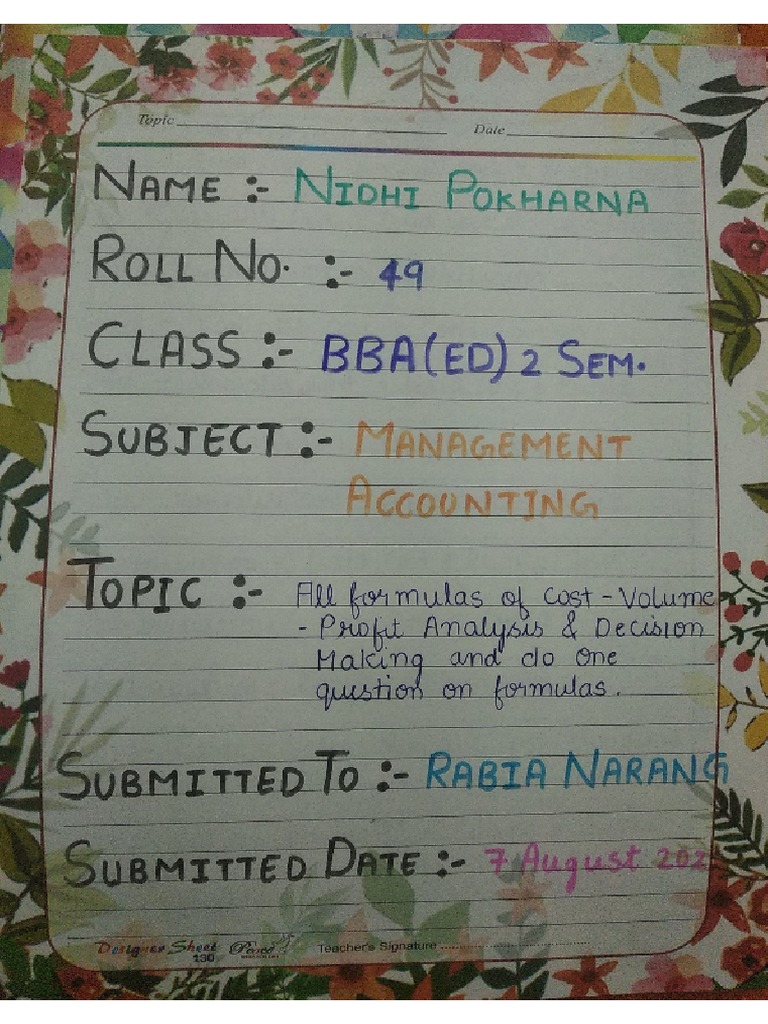 Topic Date
NAME :- NIDHI POKHARNA
ROLL NO. :- 49
CLASS :- BBA(ED) 2 SEM.
SUBJECT :- MANAGEMENT
ACCOUNTING
TOPIC :- All formulas of Cost - Volume
- Profit Analysis & Decision
Making and do one
question on formulas.
SUBMITTED TO :- RABIA NARANG
SUBMITTED DATE :- 7 August 202
Designer Sheet Teacher's Signature
130